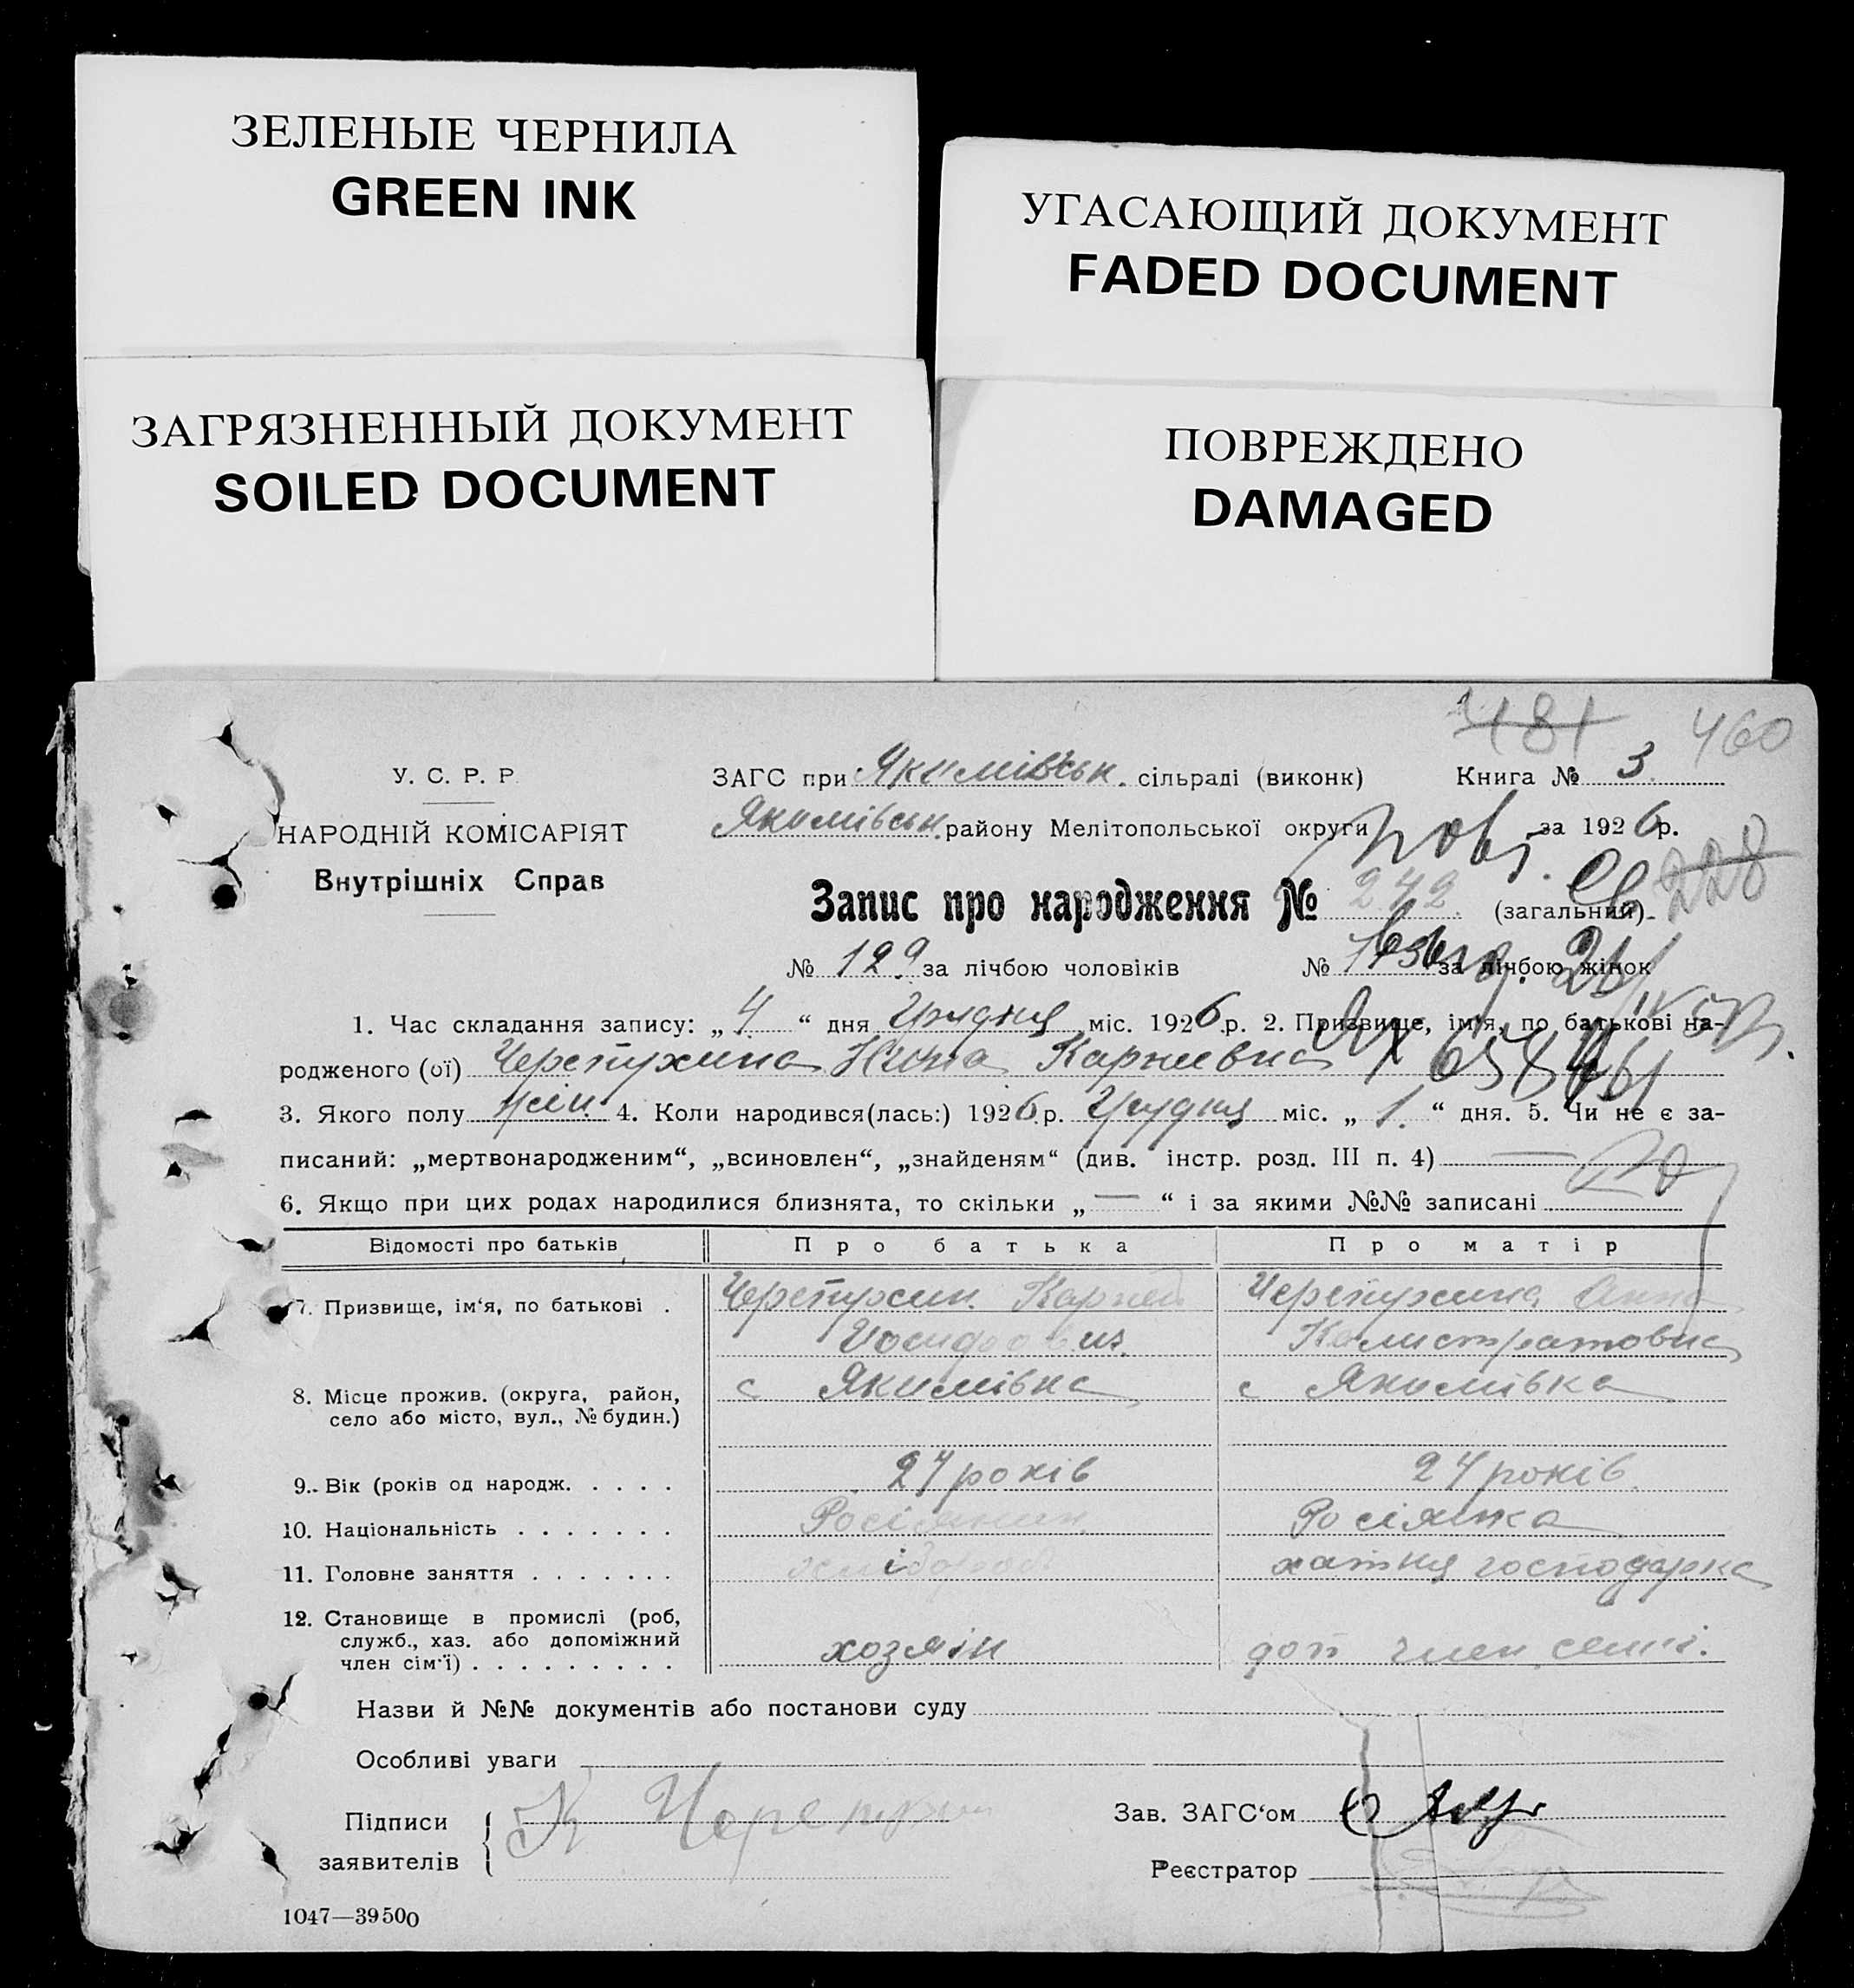 ЗЕЛЕНЫЕ ЧЕРНИЛА
GREEN INK
УГАСАЮЩИЙ ДОКУМЕНТ
FADED DOCUMENT
ЗАГРЯЗНЕННЫЙ ДОКУМЕНТ
SOILED DOCUMENT
ПОВРЕЖДЕНО
DAMAGED
481 460
У. С. Р. Р.
НАРОДНІЙ КОМІСАРІЯТ
Внутрішніх Справ
ЗАГС при Якимівськ. сільраді (виконк) Книга № 3
Якимівськ. району Мелітопольської округи за 1926 р.
228
Запис про народження № 242 (загальний)
№ 129 за лічбою чоловіків № за лічбою жінок
1. Час складання запису: „4“ дня Грудня міс. 1926 р. 2. Призвище, ім'я, по батькові на-
родженого (ої) Черепухина Нина Карпиевна
3. Якого полу жін. 4. Коли народився(лась:) 1926 р. Грудня міс. „1.“ дня. 5. Чи не є за-
писаний: „мертвонародженим“, „всиновлен“, „знайденям“ (див. інстр. розд. III п. 4) —
6. Якщо при цих родах народилися близнята, то скільки „—“ і за якими №№ записані
Відомості про батьків Про батька Про матір
7. Призвище, ім'я, по батькові . Черепухин Карпей Черепухина Анна
Калистратовна
8. Місце прожив. (округа, район, с Якимівка с Якимівка
село або місто, вул., № будин.)
9. Вік (років од народж. . . . . 24 років 24 років
10. Національність . . . . . . . Росіянин Росіянка
11. Головне заняття . . . . . . . хатня господарка
12. Становище в промислі (роб,
служб., хаз. або допоміжний
член сім'ї) . . . . . . . . . хозяїн доп член семї.
Назви й №№ документів або постанови суду
Особливі уваги
Підписи
заявителів
К Черепухин
Зав. ЗАГС'ом
Реєстратор
1047—39500